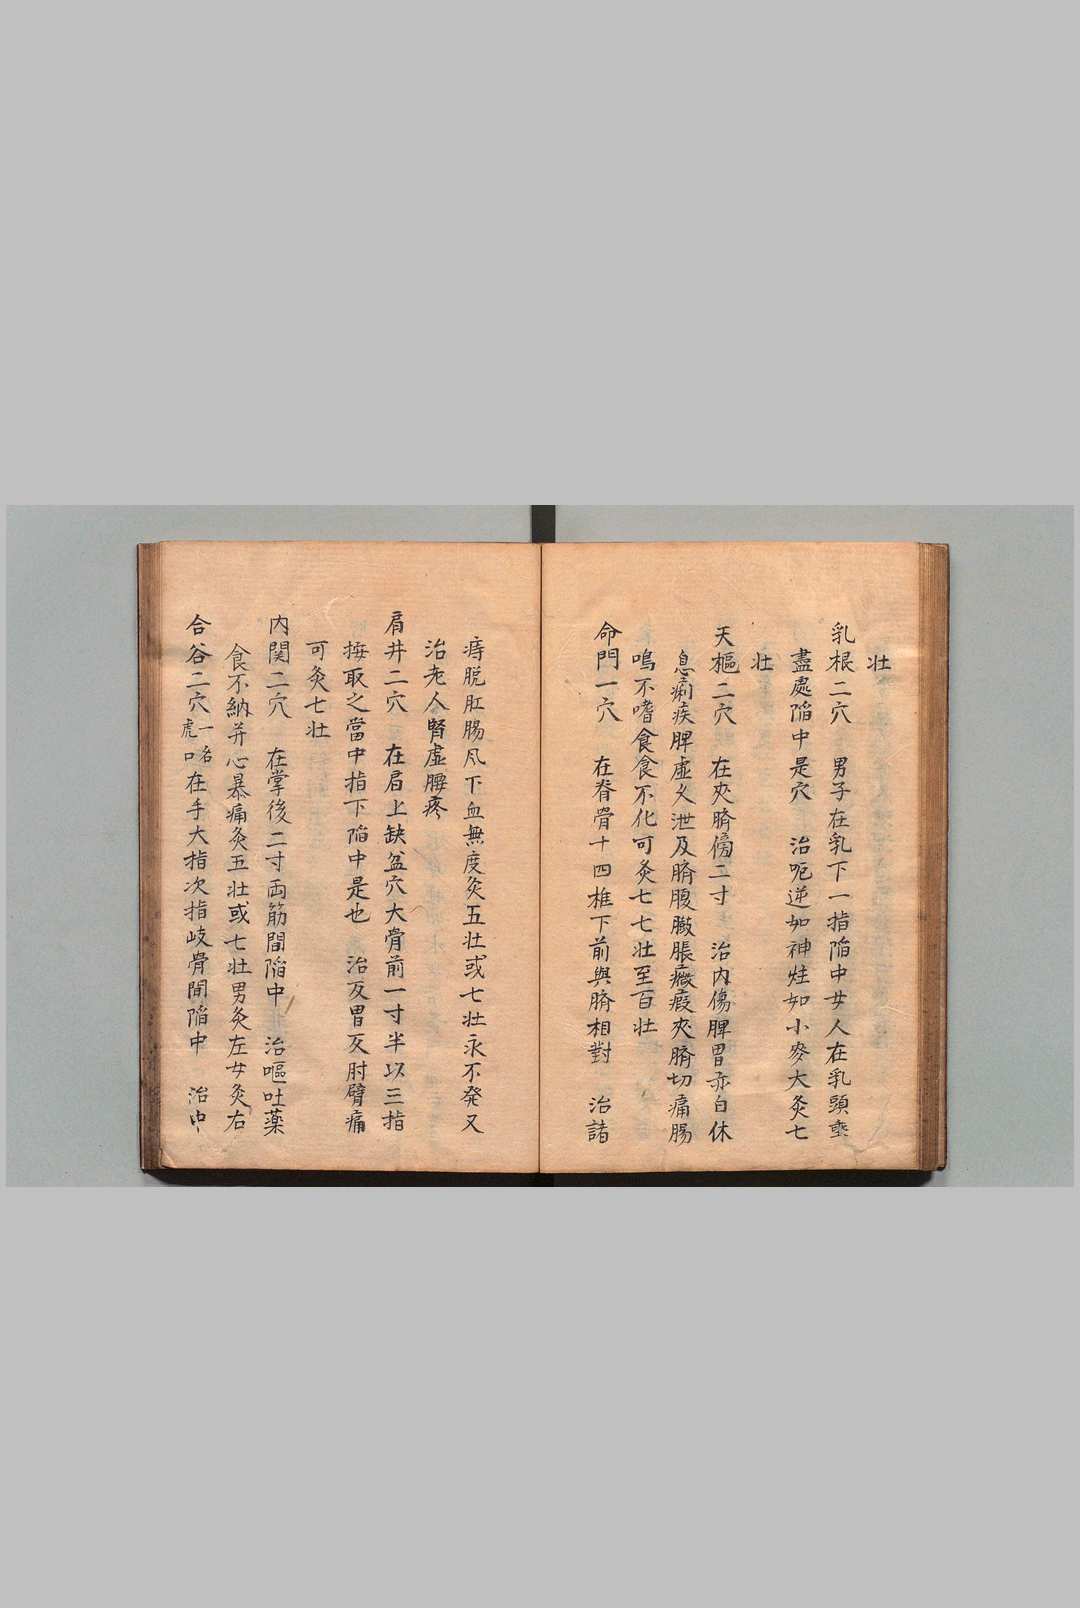 壮
乳根二穴　男子在乳下一指陥中女人在乳頭垂
盡處陥中是穴　治呃逆如神炷如小麥大灸七
壮
天樞二穴　在夾臍傍二寸　治内傷脾胃赤白休
息痢疾脾虚久泄及臍腹䐜脹癥瘕夾臍切痛腸
鳴不嗜食食不化可灸七七壮至百壮
命門一穴　在脊骨十四椎下前與臍相對　治諸
痔脱肛腸風下血無度灸五壮或七壮永不發又
治老人腎虚腰疼
肩井二穴　在肩上缺盆穴大骨前一寸半以三指
按取之當中指下陥中是也　治反胃及肘臂痛
可灸七壮
内関二穴　在掌後二寸両筋間陥中　治嘔吐薬
食不納并心暴痛灸五壮或七壮男灸左女灸右
合谷二穴一名虎口在手大指次指歧骨間陥中　治中